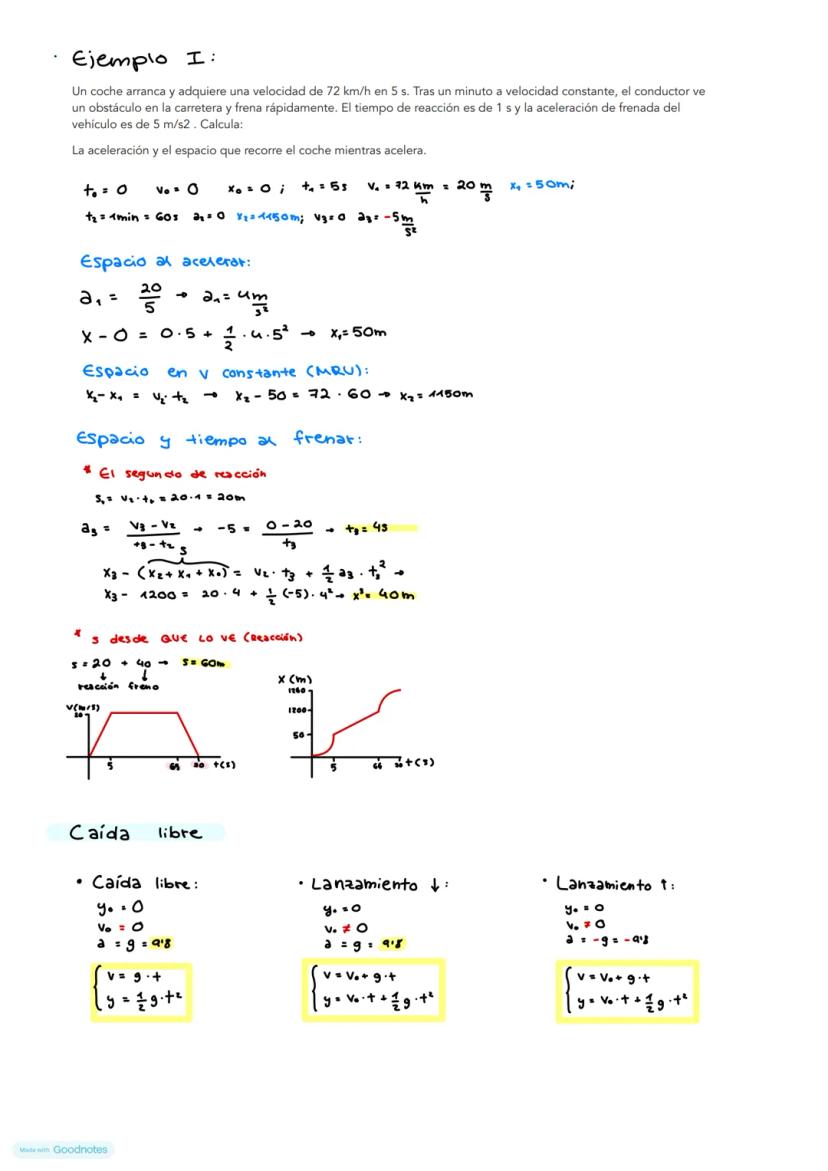 · Ejemplo I:
Un coche arranca y adquiere una velocidad de 72 km/h en 5 s. Tras un minuto a velocidad constante, el conductor ve
un obstáculo en la carretera y frena rápidamente. El tiempo de reacción es de 1 s y la aceleración de frenada del
vehículo es de 5 m/s2 . Calcula:
La aceleración y el espacio que recorre el coche mientras acelera.
t₀ = 0 v₀ = 0 x₀ = 0 ; t₁ = 5s V₁ = 72 Km/h = 20 m/s x₁ = 50m;
t₂ = 1min = 60s a₂ = 0 x₂ = 1150m; v₃ = 0 a₃ = -5 m/s²
Espacio al acelerar:
a₁ = 20/5 → a₁ = 4 m/s²
x - 0 = 0·5 + 1/2 · 4 · 5² → x₁ = 50m
Espacio en v constante (MRU):
x₂ - x₁ = v₂ · t₂ → x₂ - 50 = 72 · 60 → x₂ = 1150m
Espacio y tiempo al frenar:
* El segundo de reacción
s₁ = v₂ · t₀ = 20 · 1 = 20m
a₃ = v₃ - v₂ / t₃ - t₂ → -5 = 0 - 20 / t₃ → t₃ = 4s
s
x₃ - (x₂ + x₁ + x₀) = v₂ · t₃ + 1/2 a₃ · t₃² →
x₃ - 1200 = 20 · 4 + 1/2 (-5) · 4² → x³ = 40m
* s desde QUE LO VE (Reacción)
s = 20 + 40 → s = 60m
↓ ↓
reacción freno
V(m/s)
20
5 65 t(s)
X (m)
1260
1200
50
5 66 t(s)
Caída libre
· Caída libre:
y₀ = 0
v₀ = 0
a = g = 9'8
v = g · t
y = 1/2 g · t²
· Lanzamiento ↓:
y₀ = 0
v₀ ≠ 0
a = g = 9'8
v = v₀ + g · t
y = v₀ · t + 1/2 g · t²
· Lanzamiento ↑:
y₀ = 0
v₀ ≠ 0
a = -g = -9'8
v = v₀ + g · t
y = v₀ · t + 1/2 g · t²
Made with Goodnotes